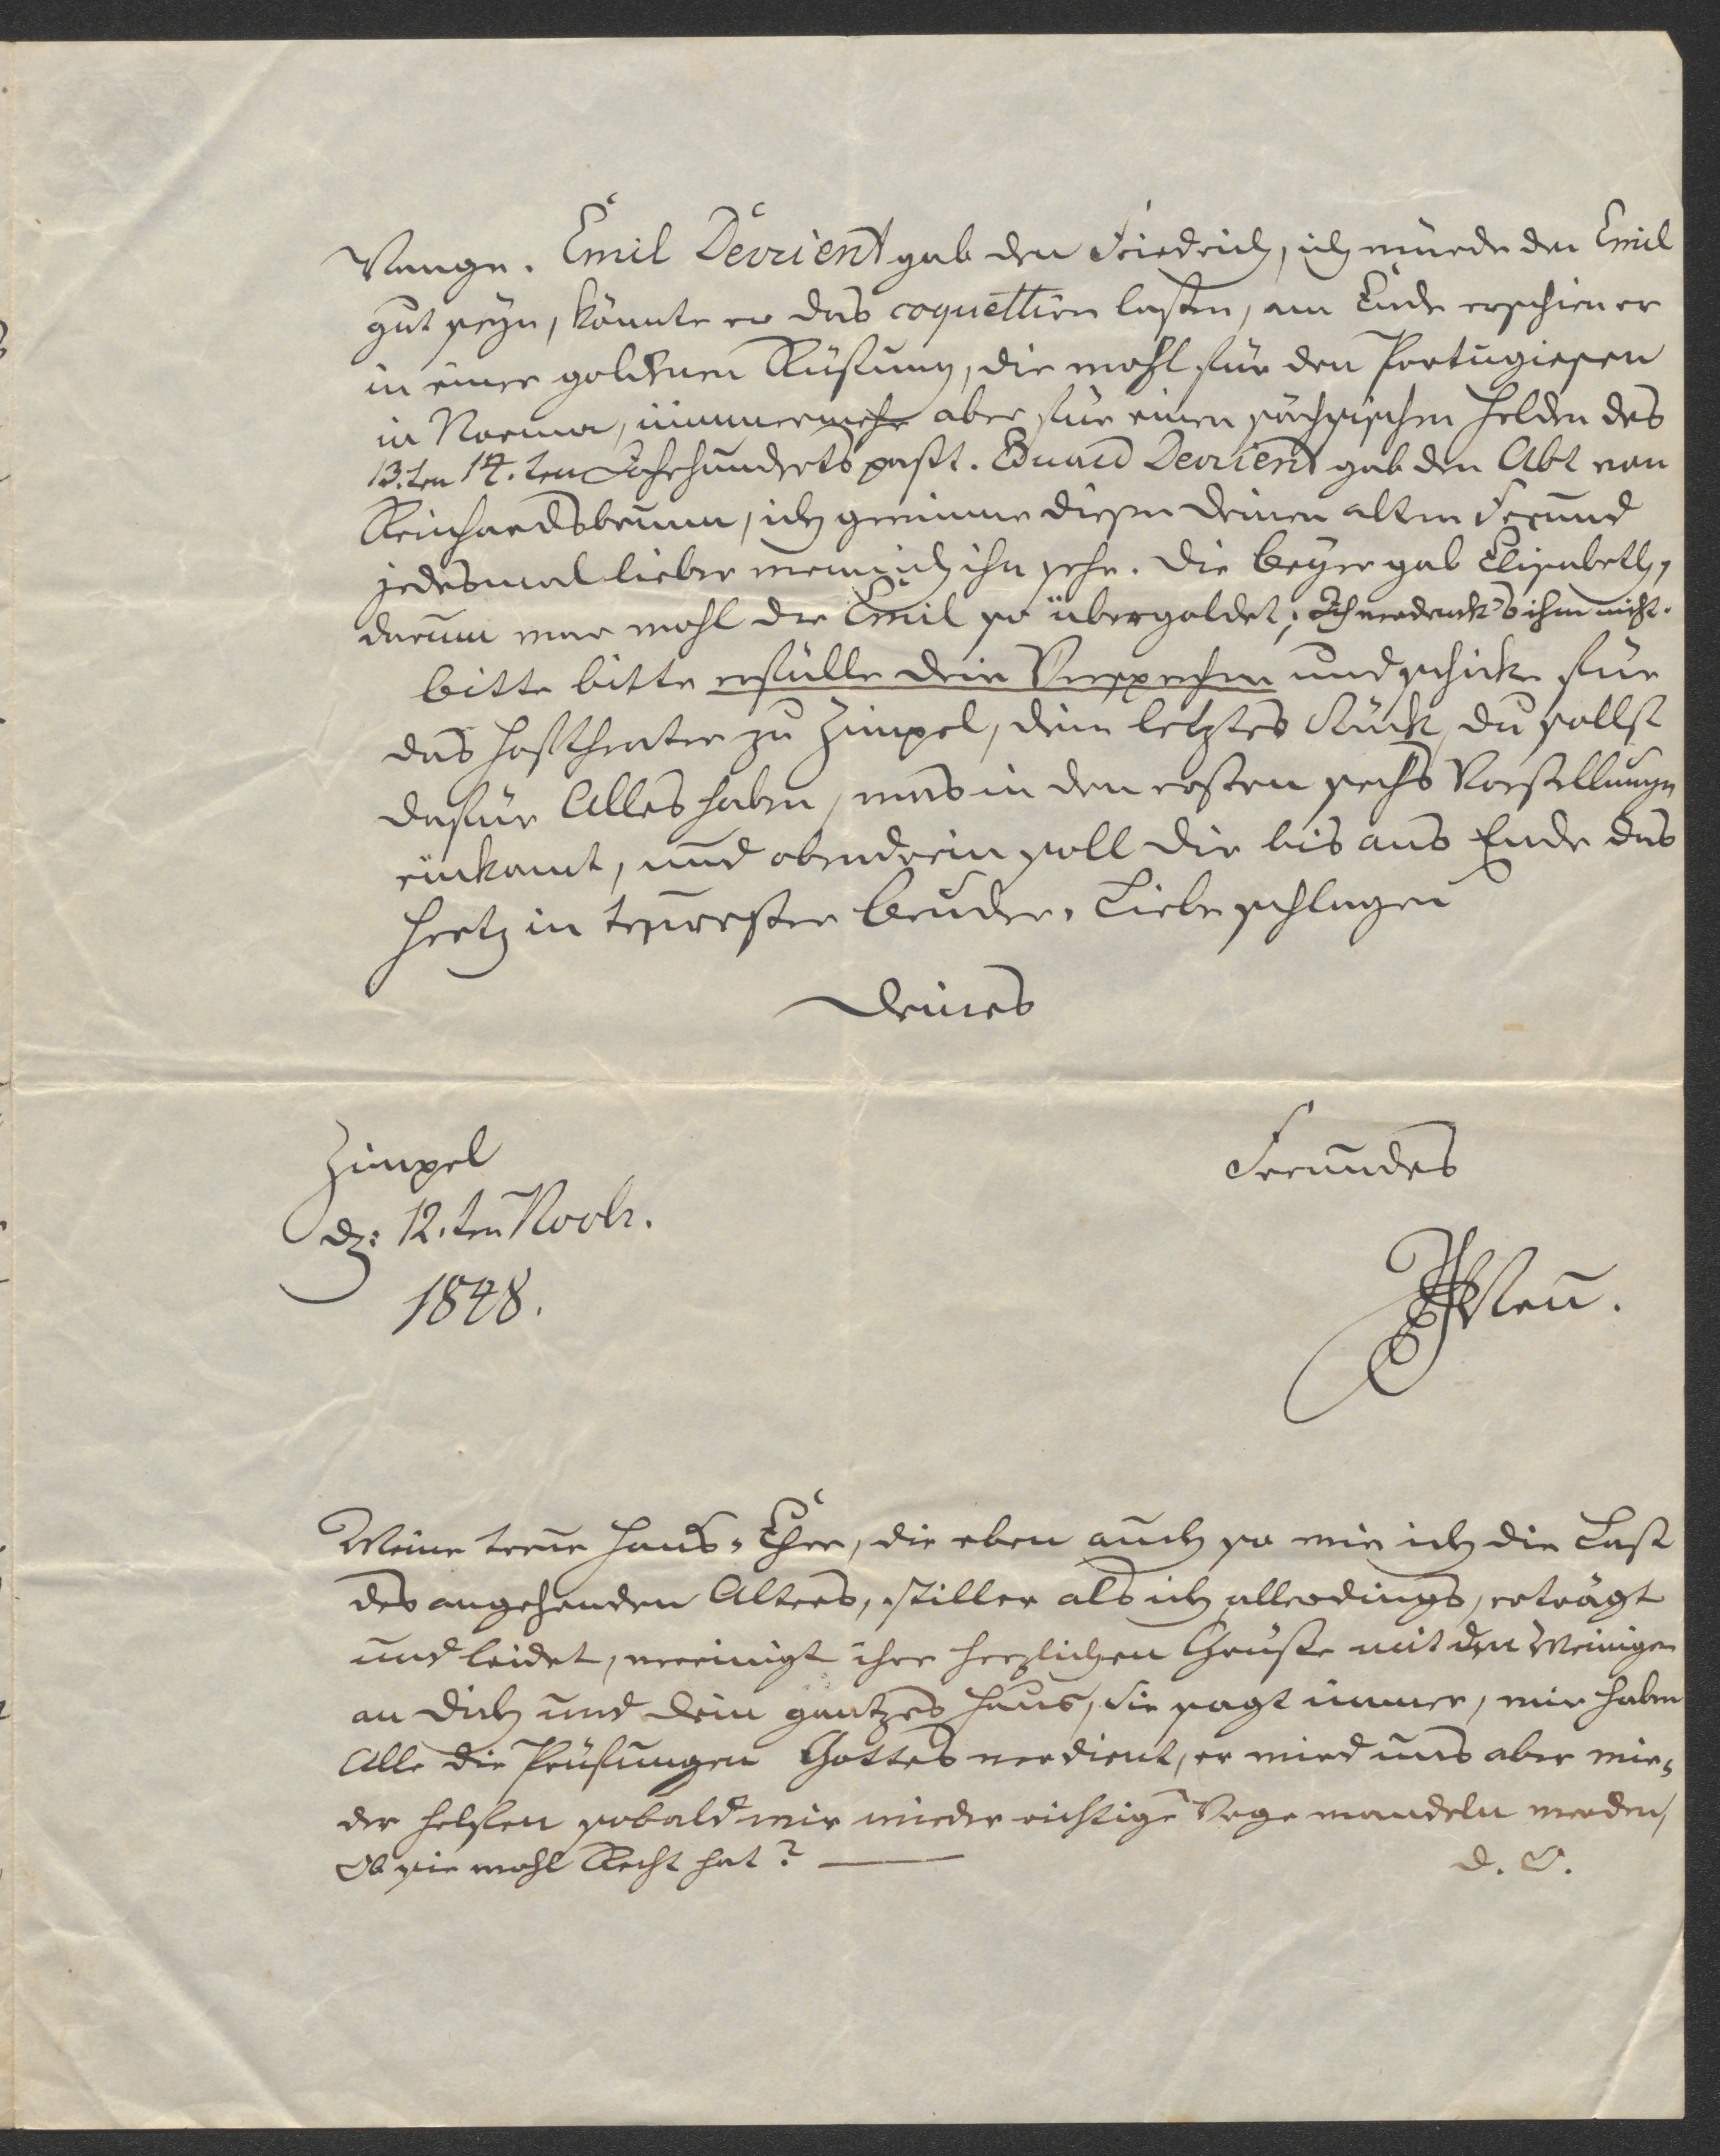 Wange. Emil Devrient gab den Friedrich, ich würde den Emil
gut seyn, könnte er das coquettiren lassen, am Ende erschien er
in einer goldenen Rüstung, die wohl für den Portugiesen
in Norma, nimmermehr aber für einen sächsischen Helden des
13.ten 14.ten Jahrhunderts passt. Eduard Devrient gab den Abt von
Reinhardsbrunn, ich gewinne diesen Deinen alten Freund
jedesmal lieber wenn ich ihn sehe. Die Beyer gab Elisabeth,
darum war wohl der Emil so übergoldet; Ich verdenk's ihm nicht.
Bitte bitte erfülle Dein Versprechen und schicke für
das Hoftheater zu Zimpel, Dein letztes Stück, Du sollst
dafür Alles haben, was in den ersten sechs Vorstellungen
einkomt, und obendrein soll Dir bis ans Ende das
Hertz in treuester Bruder-Liebe schlagen
Deines
Freundes
Zimpel
d: 12.ten Novbr.
1848.
Meine treue Haus-Ehre, die eben auch so wie ich die Last
des angehenden Alters, stiller als ich allerdings, erträgt
und leidet, vereinigt ihre herzlichen Grüße mit den Meinigen
an Dich und Dein gantzes Haus, Sie sagt immer, wir haben
Alle die Prüfungen Gottes verdient, er wird uns aber wie-
der helfen sobald wir wieder richtige Wege wandeln werden,
Ob sie wohl Recht hat? —
D. O.